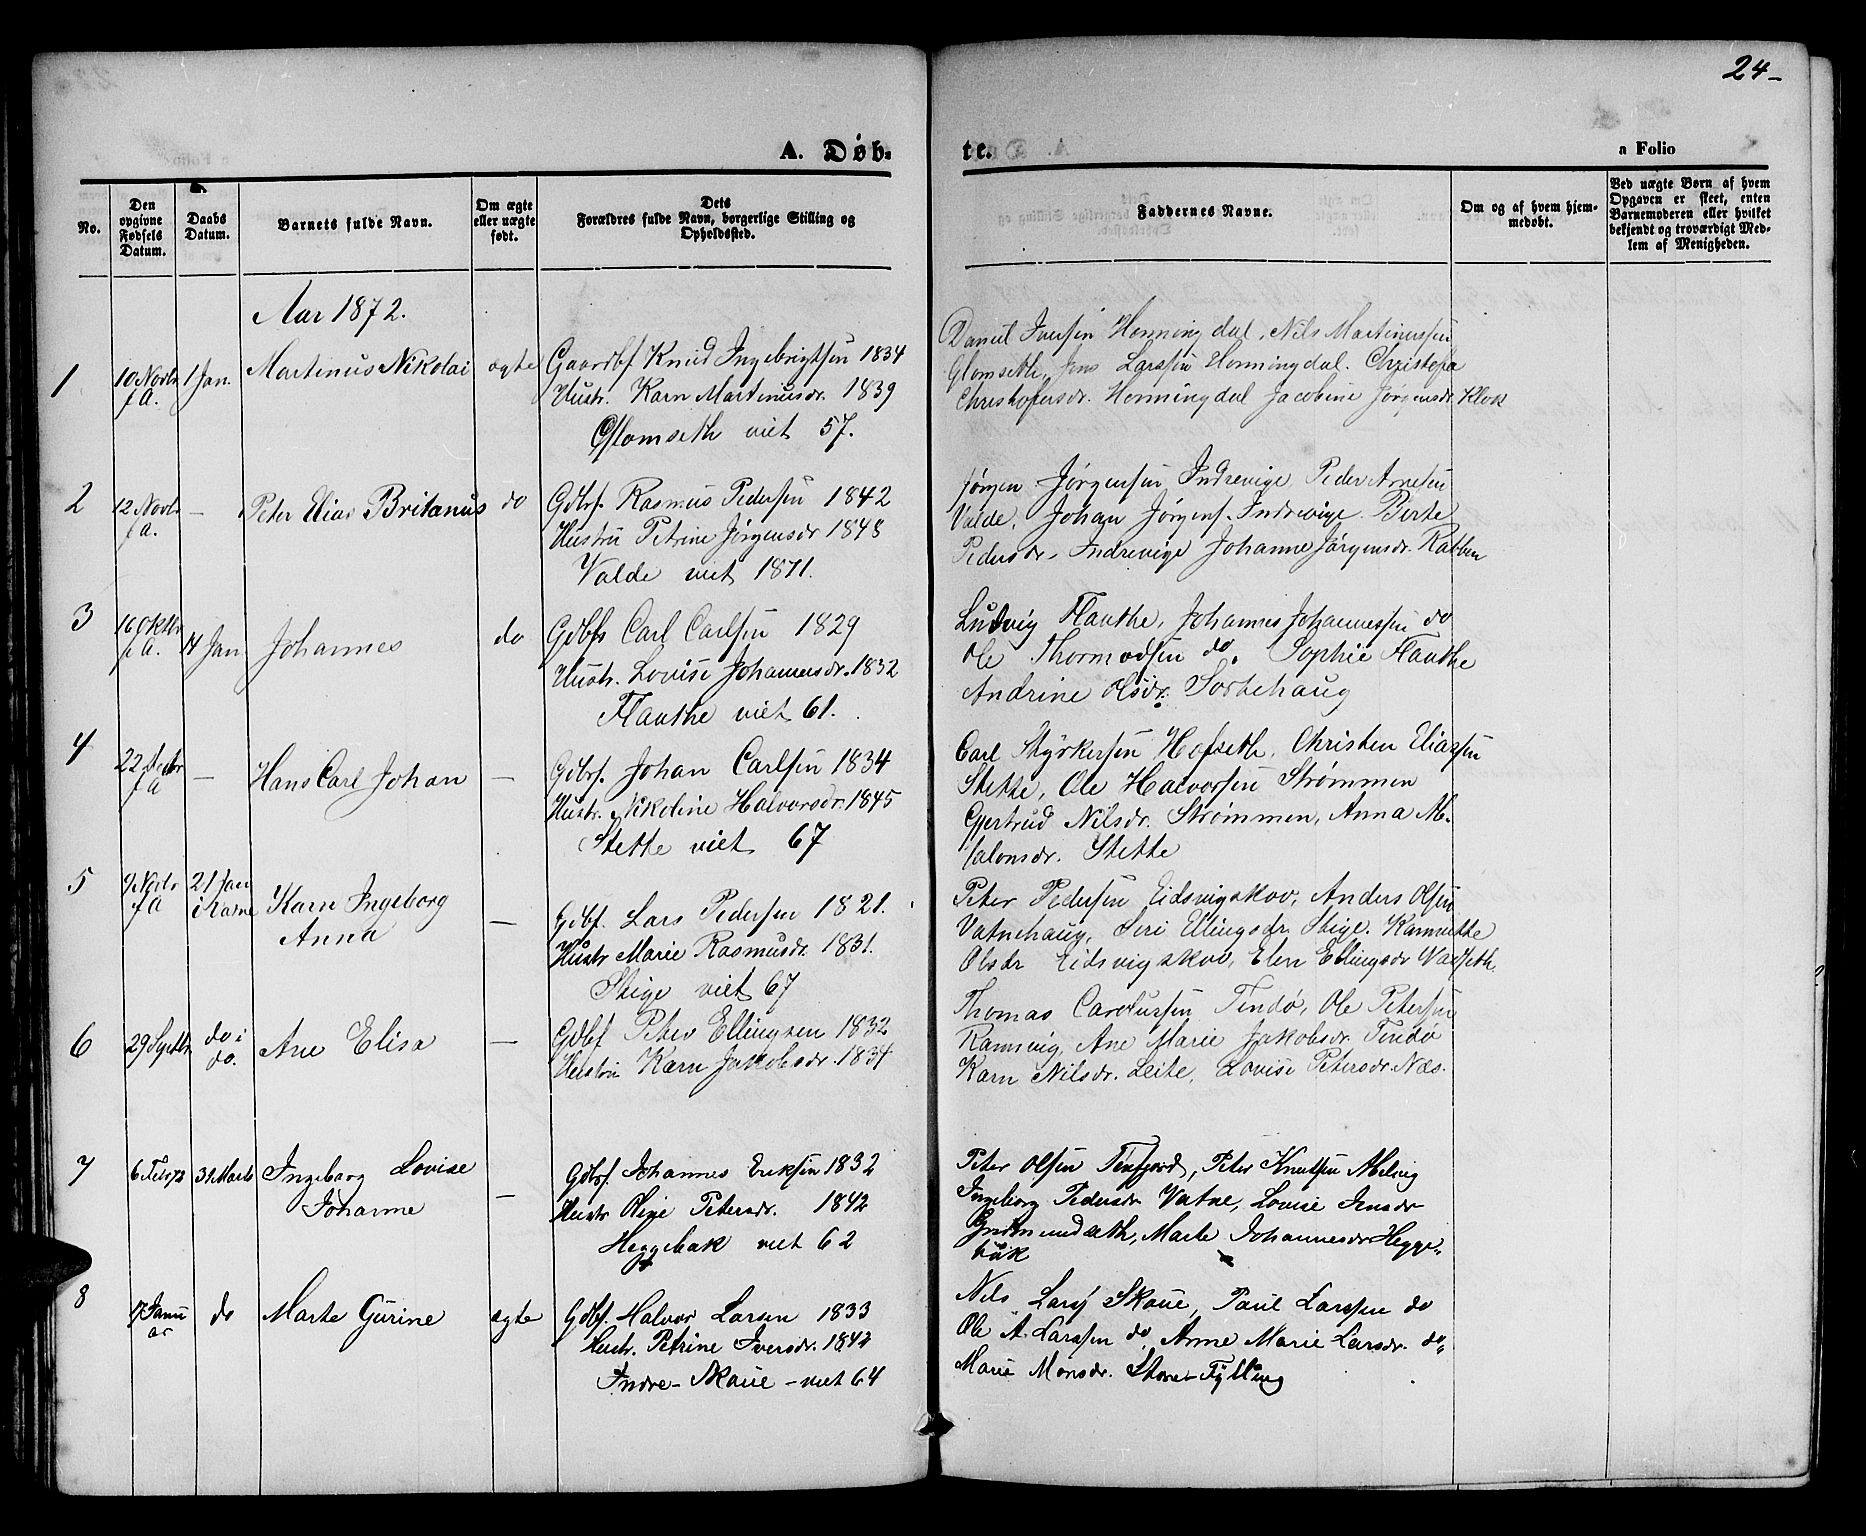 24-
A. Døb-
te.
a Folio
No.
Den opgivne Fødsels Datum.
Daabs Datum.
Barnets fulde Navn.
Om ægte eller uægte født.
Dets Forældres fulde Navn, borgerlige Stilling og Opholdssted.
Faddernes Navne.
Om og af hvem hjemmedøbt.
Ved uægte Børn af hvem Opgaven er skeet, enten Barnemoderen eller hvilket bekjendt og troværdigt Medlem af Menigheden.
Aar 1872.
1
10 Novbr f A.
1 Jan.
Martinus Nikolai
ægte
Gaardbf Knud Ingebrigtsen 1834
Hustr. Karn Martinusdr. 1839
Glomseth viet 57.
Daniel Iversen Honningdal, Nils Martinussen
Glomseth, Jens Larssen Honningdal. Christofa
Christofersdr. Honningdal Jacobine Jørgensdr Klok
2
12 Novbr f A.
—
Peter Elias Britanus
do
Gdbrf. Rasmus Pedersen 1842
Hustru Petrine Jørgensdr 1848
Valde viet 1871.
Jørgen Jørgensen Indrevige Peder Arnesen
Valde, Johan Jørgens. Indrevige. Birte
Pedersdr. Indrevige Johanne Jørgensdr. Rabben
3
16 Oktbr f A.
14 Jan
Johannes
do
Gdbfs Carl Carlsen 1829
Hustr. Lovise Johannesdr. 1832
Flauthe viet 61.
Ludvig Flauthe, Johannes Johannessen do
Ole Thormodsen do. Sophie Flauthe
Andrine Olsdr. Sortehaug
4
22 Decbr f A
—
Hans Carl Johan
—
Gdbrf. Johan Carlsen 1834
Hustr. Nikoline Halvorsdr. 1845
Stette viet 67
Carl Styrkersen Hofseth, Christen Eliassen
Stette, Ole Halvorsen Strømmen
Gjertrud Nilsdr. Strømmen, Anna M.
Salonsdr. Stette
5
9 Novbr f A
21 Jan i Kame
Karn Ingeborg
Anna
—
Gdbf. Lars Pedersen 1821.
Hustr Marie Rasmusdr. 1831.
Stige viet 67
Peter Pedersen Eidsvigskov, Anders Olsen
Vatnehaug, Seri Ellingsdr. Stige. Karnuthe
Olsdr Eidsvigskov, Elen Ellingsdr Vadseth
6
29 Septbr
do i do.
Ane Elisa
—
Gdbf Peter Ellingsen 1832
Hustru Karn Jakobsdr. 1834
Thomas Carolussen Tindø, Ole Petersen
Ramsvig, Ane Marie Jakobsdr. Tindø
Karn Nilsdr. Leite, Lovise Petersdr. Næs.
7
6 Febr
31 Marts
Ingeborg Lovise
Johanne
—
Gdbrf. Johannes Eriksen 1832
Hustr Oline Petersdr. 1842
Heggebak viet 62
Peter Olsen Tenfjord, Peter Knutsen Melvig
Ingeborg Pedersdr Vatne, Lovise Jensdr
Gudmundseth, Marte Johannesdr Hegge-
bak
8
17 Janu
ar
do
Marte Gurine
ægte
Gdbf. Halvor Larsen 1833
Hustr. Petrine Iversdr. 1842
Indre-Skaue - viet 64
Nils Lars Skaue, Paul Larssen do
Ole A. Larssen do, Anne Marie Larsdr. do,
Marie Monsdr. Store-Fylling